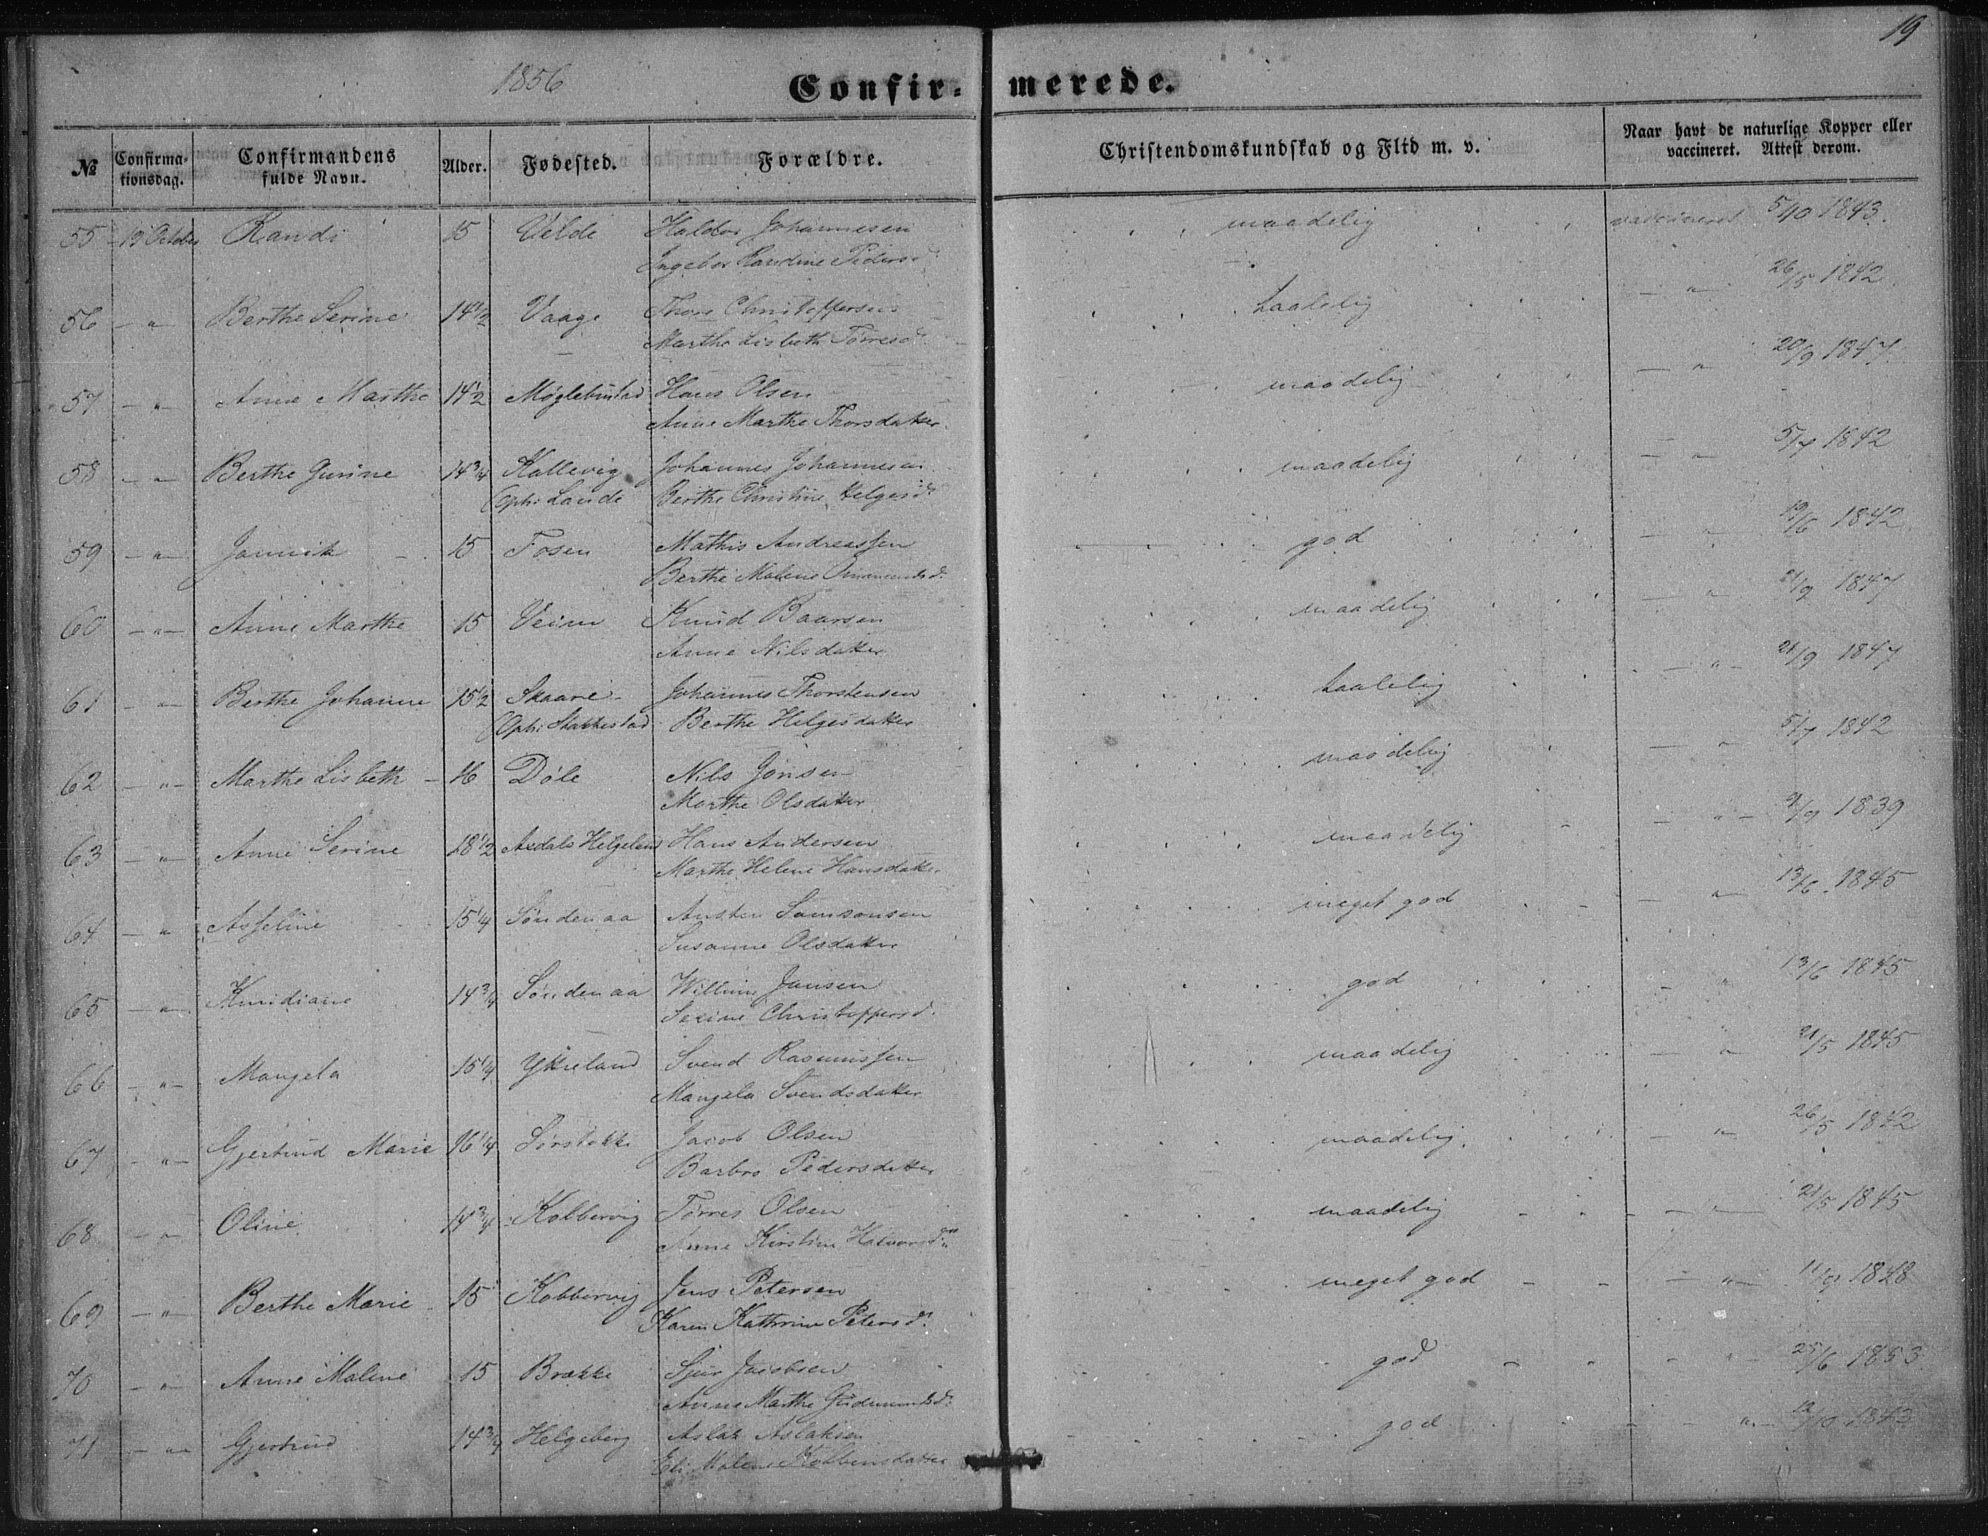 19
1856
Confir- merede.
№ Confirma-tionsdag. Confirmandens fulde Navn. Alder. Fødested. Forældre. Christendomskundskab og Flid m. v. Naar havt de naturlige Kopper eller vaccineret. Attest derom.
55 19 October Randi 15 Velde Haldor Johannesen maadelig vaccineret 5/10 1843.
Ingebor Pedersd.
56 - " Berthe Serine 14 1/2 Vaage Thore Christoffersen taalelig - " 26/5 1842
Marthe Lisbeth Torresd.
57 - " - Anne Marthe 14 1/2 Møglebustad Hans Olsen maadelig - " 20/9 1847
Anne Marthe Thorsdatter
58 - " Berthe Gurine 14 3/4 Kallevig Johannes Johannesen maadelig - " 5/7 1842
(Oph: Lande Berthe Christine Helgesd.
59 - " - Jannik 15 Fosen Mathis Andreassen god " 19/6 1842
Berthe Malene
60 - " - Anne Marthe 15 Knud Baarsen maadelig - " 21/9 1847
Anne Nilsdatter
61 - " - Berthe Johanne 15 1/2 Skaare Johannes Thorstensen taalelig - " - 21/9 1847
(Oph: Stakkestad Berthe Helgesdatter
62 - " - Marthe Lisbeth 16 Døle Nils Jonsen maadelig - " 5/7 1842
Marthe Olsdatter
63 - " - Anne Serine 18 1/2 Aasdals Helgeland Hans Andersen maadelig - " - 9/9 1839
Marthe Helene Hansdatter
64 - " Asseline 15 1/4 Søndenaa Austen Samsonsen meget god " 13/6 1845
Susanne Olsdatter
65 - " - Knudiane 14 3/4 Søndenaa Willum Jansen god " 13/6 1845
Serine Christoffersd.
66 - " - Mangela 15 1/4 Ykreland Svend Rasmussen maadelig - " 21/5 1845
Mangela Svendsdatter
67 - " - Gjertrud Marie 16 1/4 Sørstokke Jacob Olsen maadelig. - " 26/5 1842
Barbro Pedersdatter
68 - " Oline 14 3/4 Kobbervig Torres Olsen maadelig - " - 21/5 1845
Anne Kirstine Halvorsd.
69 - " - Berthe Marie 15 Kobbervig Jens Petersen meget god - " - 11/9 1848
Karen Kathrine Petersd.
70 - " - Anne Malene 15 Brække Sjur Jacobsen god - " 25/6 1853
Anne Marthe Gudmundsd.
71 - " - Gjertrud 14 3/4 Helgeberg Aslak Aslaksen god - " - 12/10 1843
Eli Malene